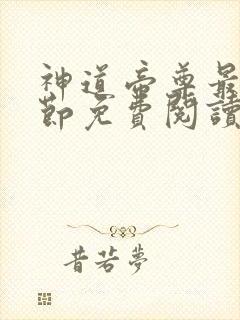 神道帝尊最
節免費閱讀
昔若夢